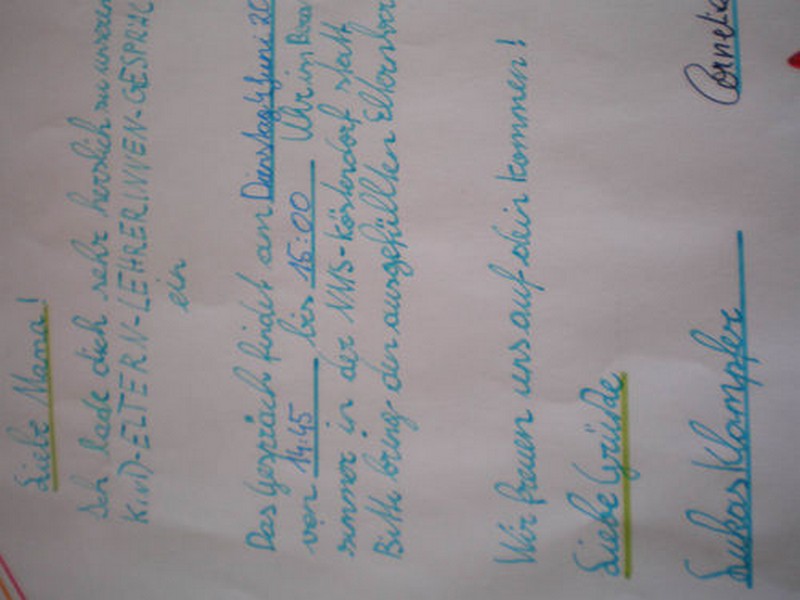 Liebe Mama!
Ich lade dich sehr herzlich zu unserem
KIND-ELTERN-LEHRERINNEN-GESPRÄC
ein
Das Gespräch findet am Dienstag 4 Juni 20
von 14:45 bis 15:00 Uhr im
zimmer in der NMS-Köstendorf statt
Bitte bring den ausgefüllten
Wir freuen uns auf dein kommen!
Liebe Grüße
Lukas Klampfer Cornelia